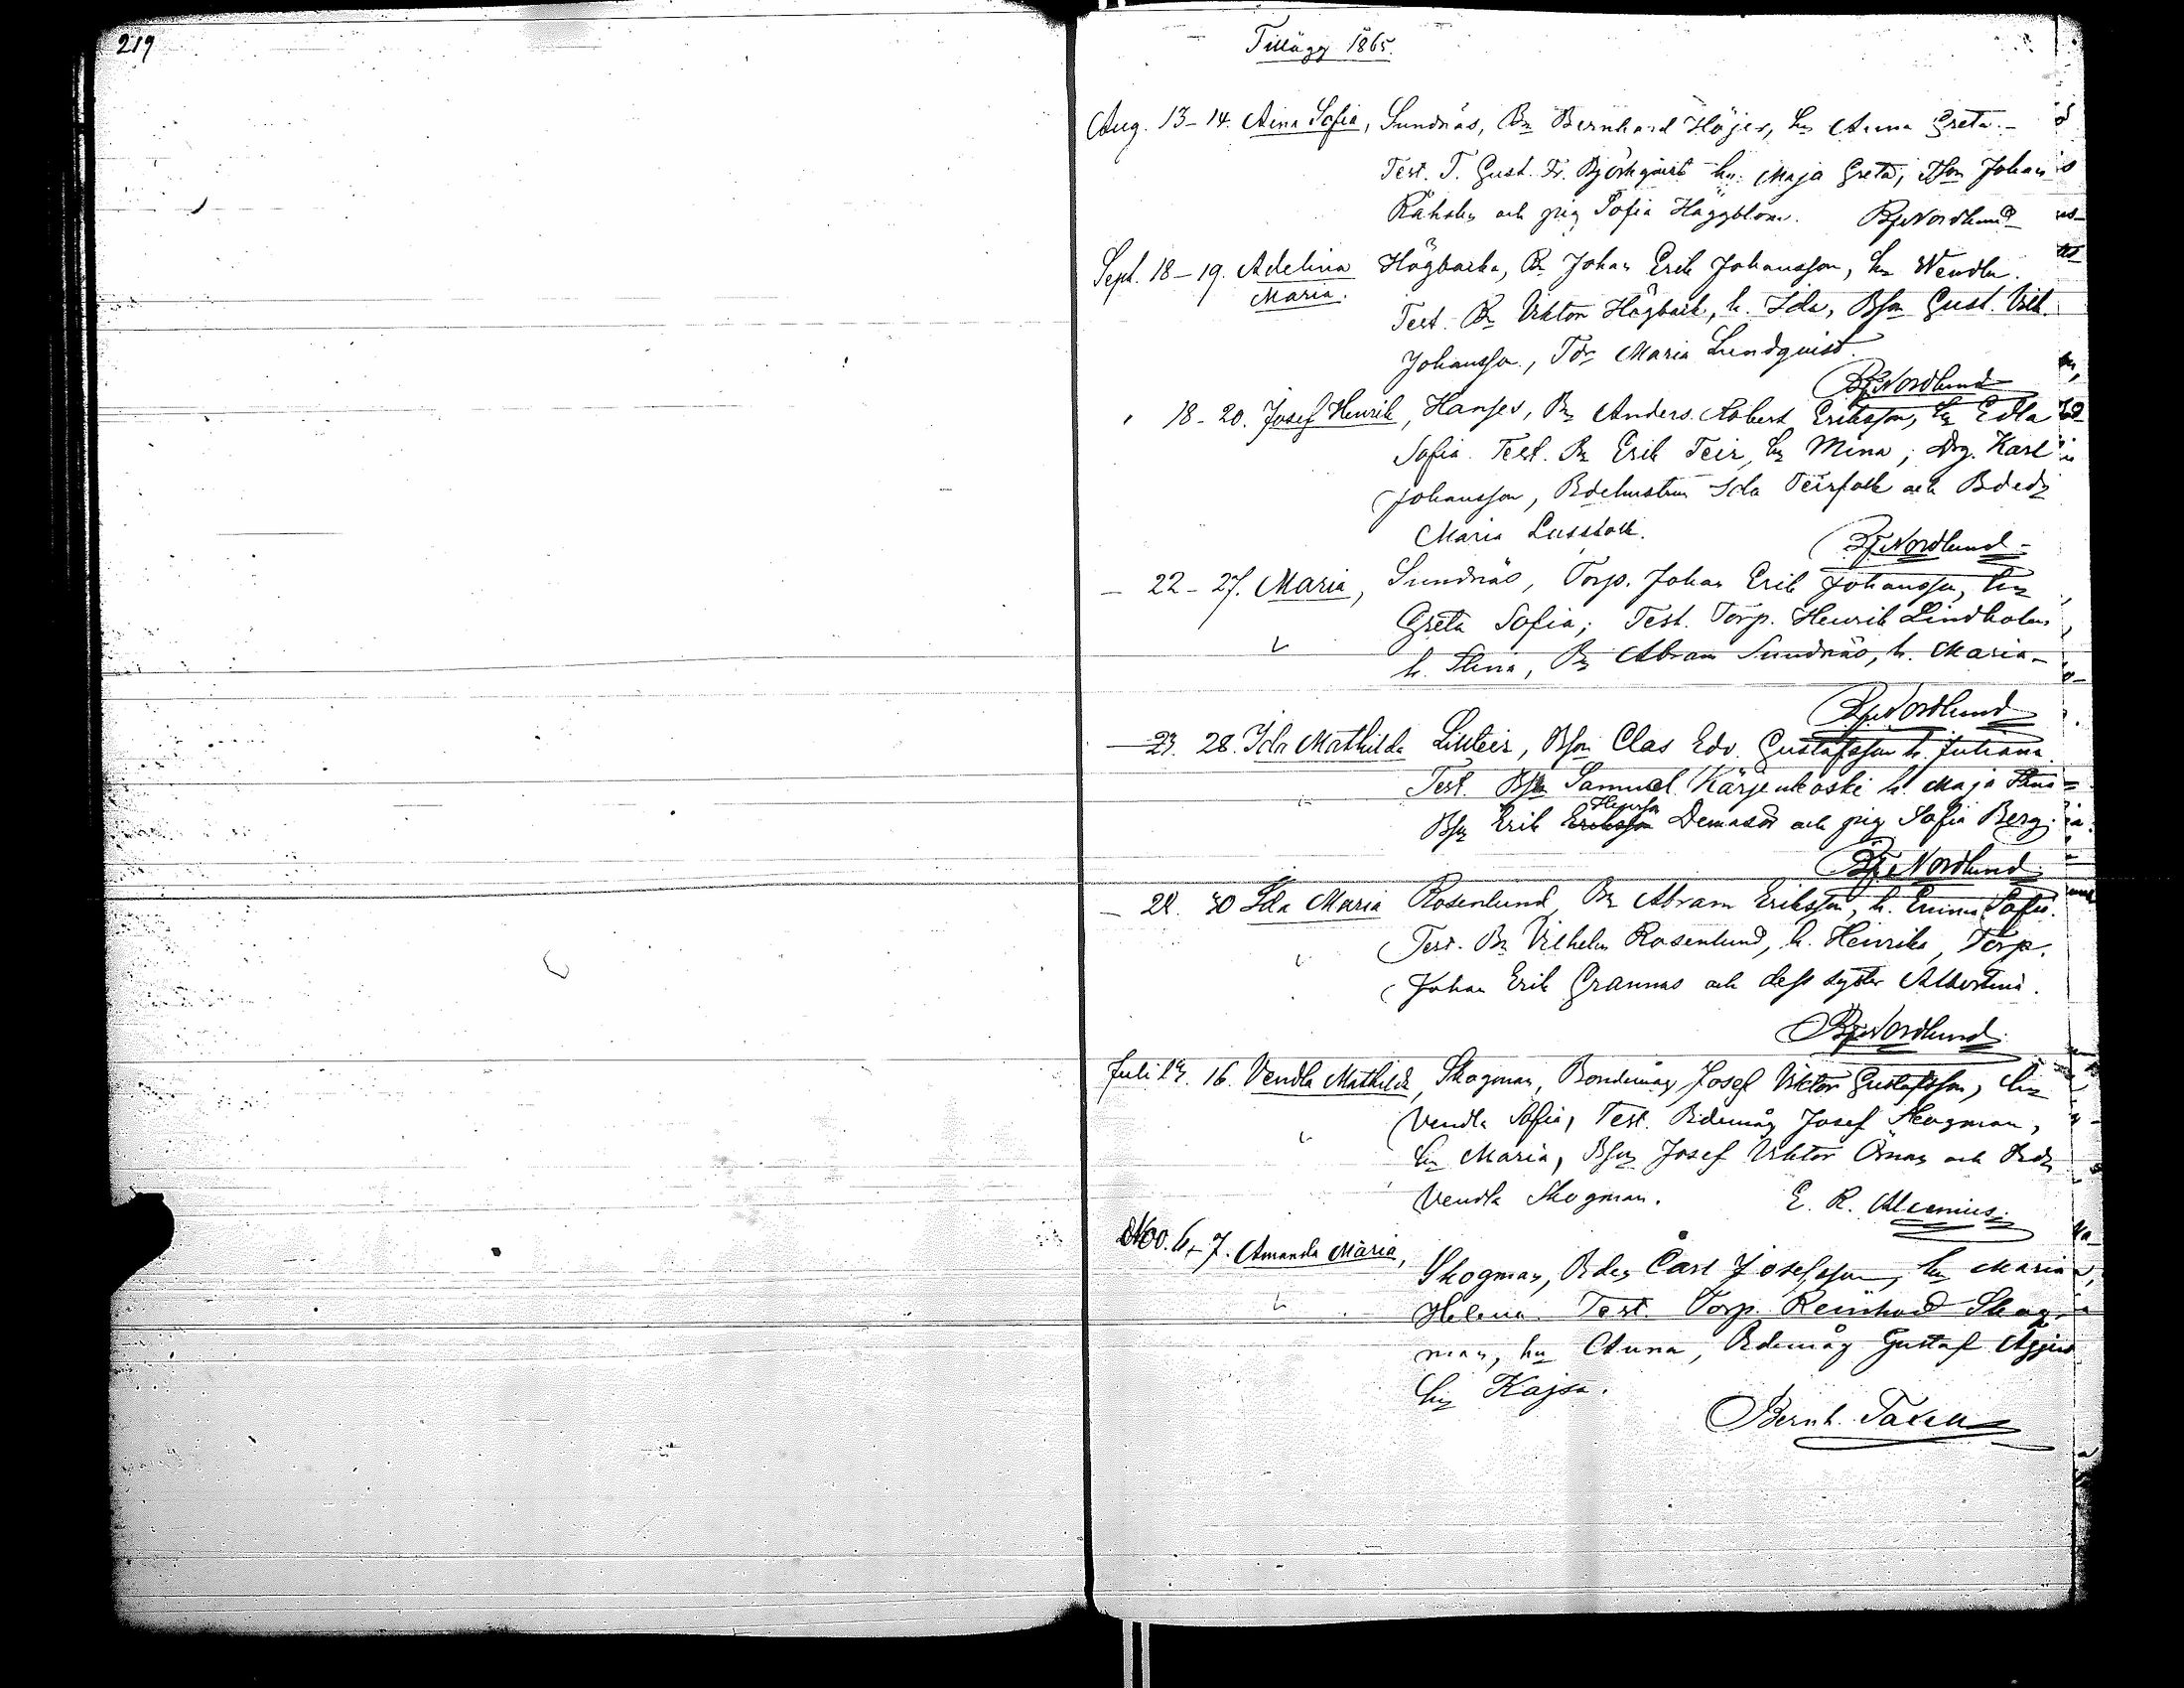 219
Tillägg 1865.
Aug. 13-14. Aina Sofia, Sundnäs, Bn Bernhard Höjer, hu Anna Greta.-
Test. T. Gust. Fr. Björkqvist hu. Maja Greta, Johan
och pig Sofia Häggblom. Nordlund
Sept. 18-19. Adelina Högbacka, Bn Johan Erik Johansson, hu Wendla.
Maria.
Test. Bn Viktor Högback, h. Ida, Bson Gust. Vilh.
Johansson, Tdr Maria Lundquist.
Nordlund
" 18-20. Josef Henrik, Hanses, Bn Anders Robert Eriksson, hu Edla
Sofia. Test. Bn Erik Teir, hu Mina, Drg. Karl
Johansson, Bdehustru Ida Teirfolk och
Maria Lussfolk.
Nordlund-
- 22-27. Maria, Sundnäs, Torp. Johan Erik Johansson, hu
Greta Sofia; Test. Torp. Henrik Lindholm
h. Stina, Bn Abram Sundnäs, h. Maria-
Nordlund
- 23. 28. Ida Mathilda Lillteir, Bson Clas Edv. Gustafsson h. Juliana
Test. Samuel Kärjenkoski h. Maja Stina
Henrson
Erik Eriksson Demasör och pig Sofia Berg.
Nordlund
- 22. 30 Ida Maria Rosenlund Bn Abram Eriksson, h. Emma Sofia.
Test. Bn Vilhelm Rosenlund, h. Henrika, Torp.
Johan Erik Grannas och dess syster Albertina.
Nordlund
Juli 16. Vendla Mathilda, Skogman, Bondemåg Josef Viktor Gustafsson, hu
Vendla Sofia, Test. Bdemåg Josef Skogman,
hu Maria, Josef Viktor och
Vendla Skogman. E. R. Alcenius.
Nov. 6-7. Amanda Maria,
Skogman, Carl Josefsson, hu Maria
Helena. Test. Torp. Reinhard Skog-
man, hu Anna, Bdemåg Gustaf
hu Kajsa.
Bernh.